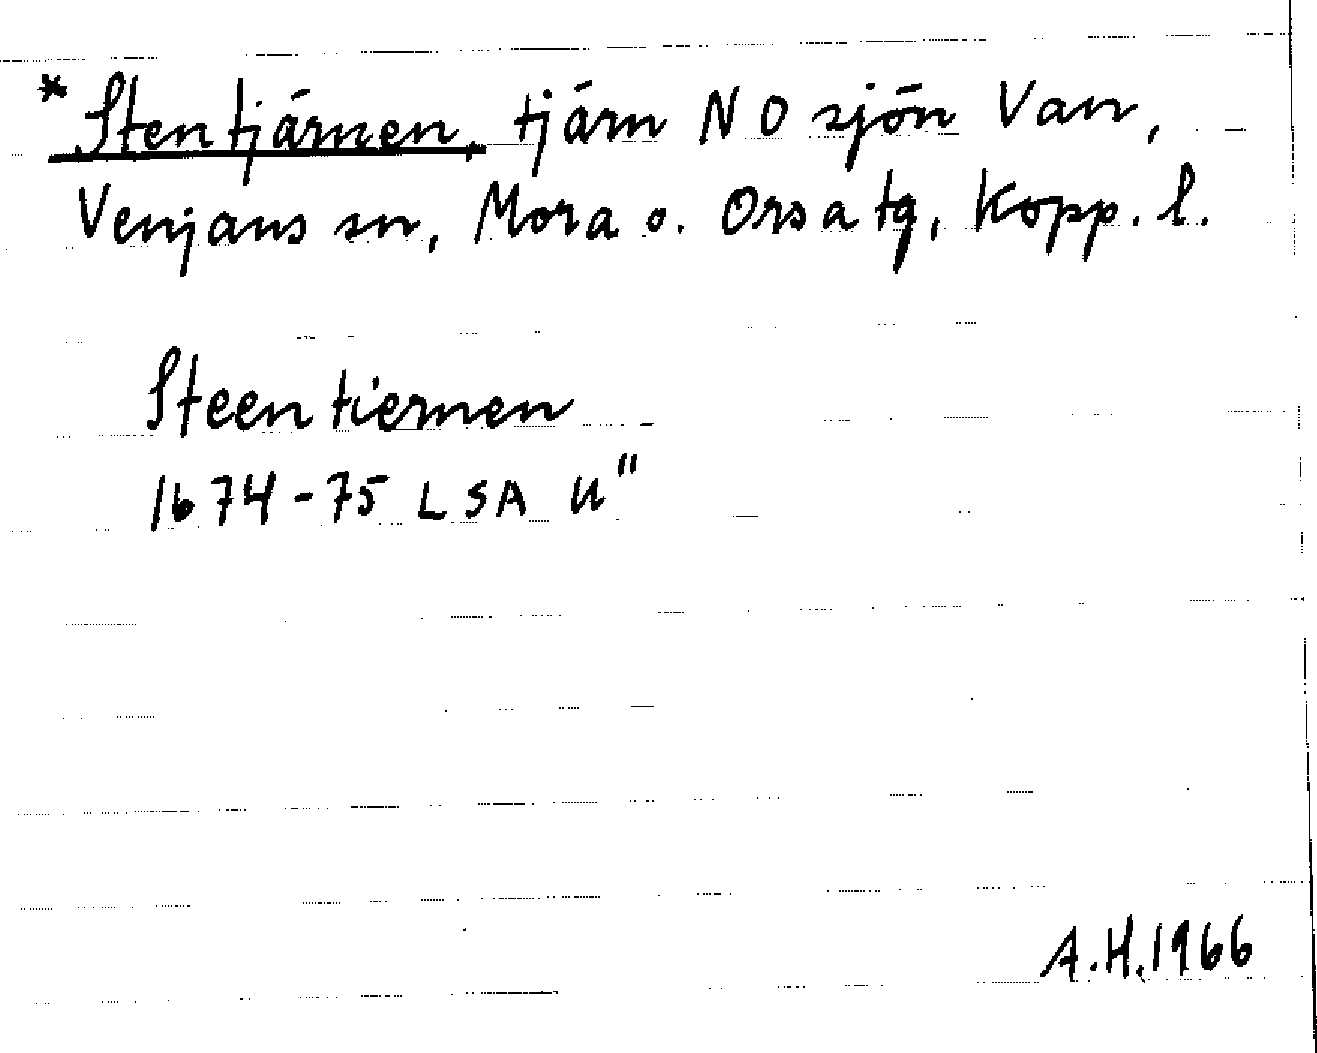 * Stentjärnen, tjärn NO sjön Van,
Venjans sn, Mora o. Orsa tg, Kopp. l.
Steentiernen
1674-75 LSA U"
A.H.1966